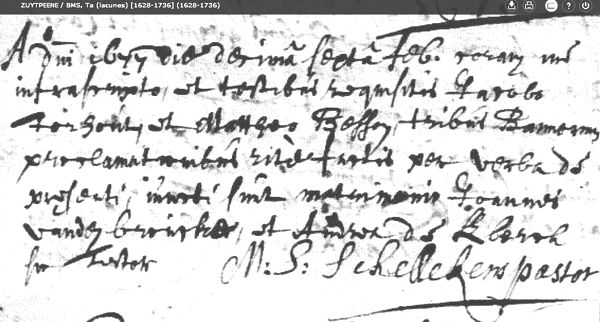 ZUYTPEENE / BMS, Ta (lacunes) [1628-1736] (1628-1736)
Aº Dni 1677 die decimâ septâ feb. coram me
infrascripto, et testibus requisitis Jacobo
torhout, et Mattheo Besson, tribus Bannorum
proclamationibus ritè factis per verba de
presenti, iuncti sunt matrimonio Joannes
vander brincke, et Andrea de Klerck
M: S: Schellekens pastor